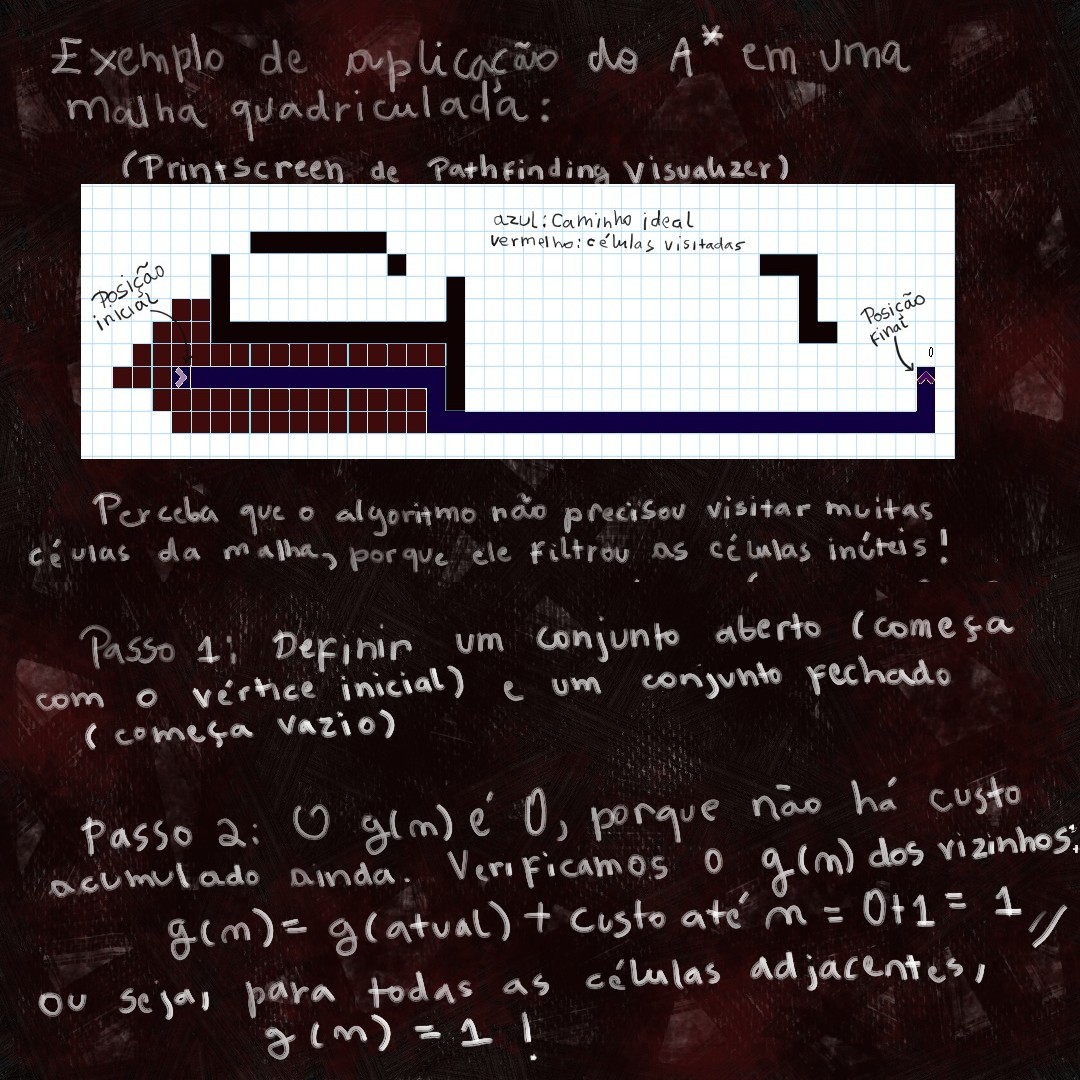 Exemplo de aplicação do A* em uma
malha quadriculada:
(Printscreen de Pathfinding Visualizer)
azul: Caminho ideal
vermelho: células visitadas
Posição
inicial
Posição
Final
0
Perceba que o algoritmo não precisou visitar muitas
células da malha, porque ele filtrou as células inúteis!
Passo 1: Definir um conjunto aberto (começa
com o vértice inicial) e um conjunto fechado
(começa vazio)
Passo 2: O g(n) é 0, porque não há custo
acumulado ainda. Verificamos o g(n) dos vizinhos:
g(n) = g(atual) + custo até n = 0+1 = 1 //
ou seja, para todas as células adjacentes,
g(n) = 1 !